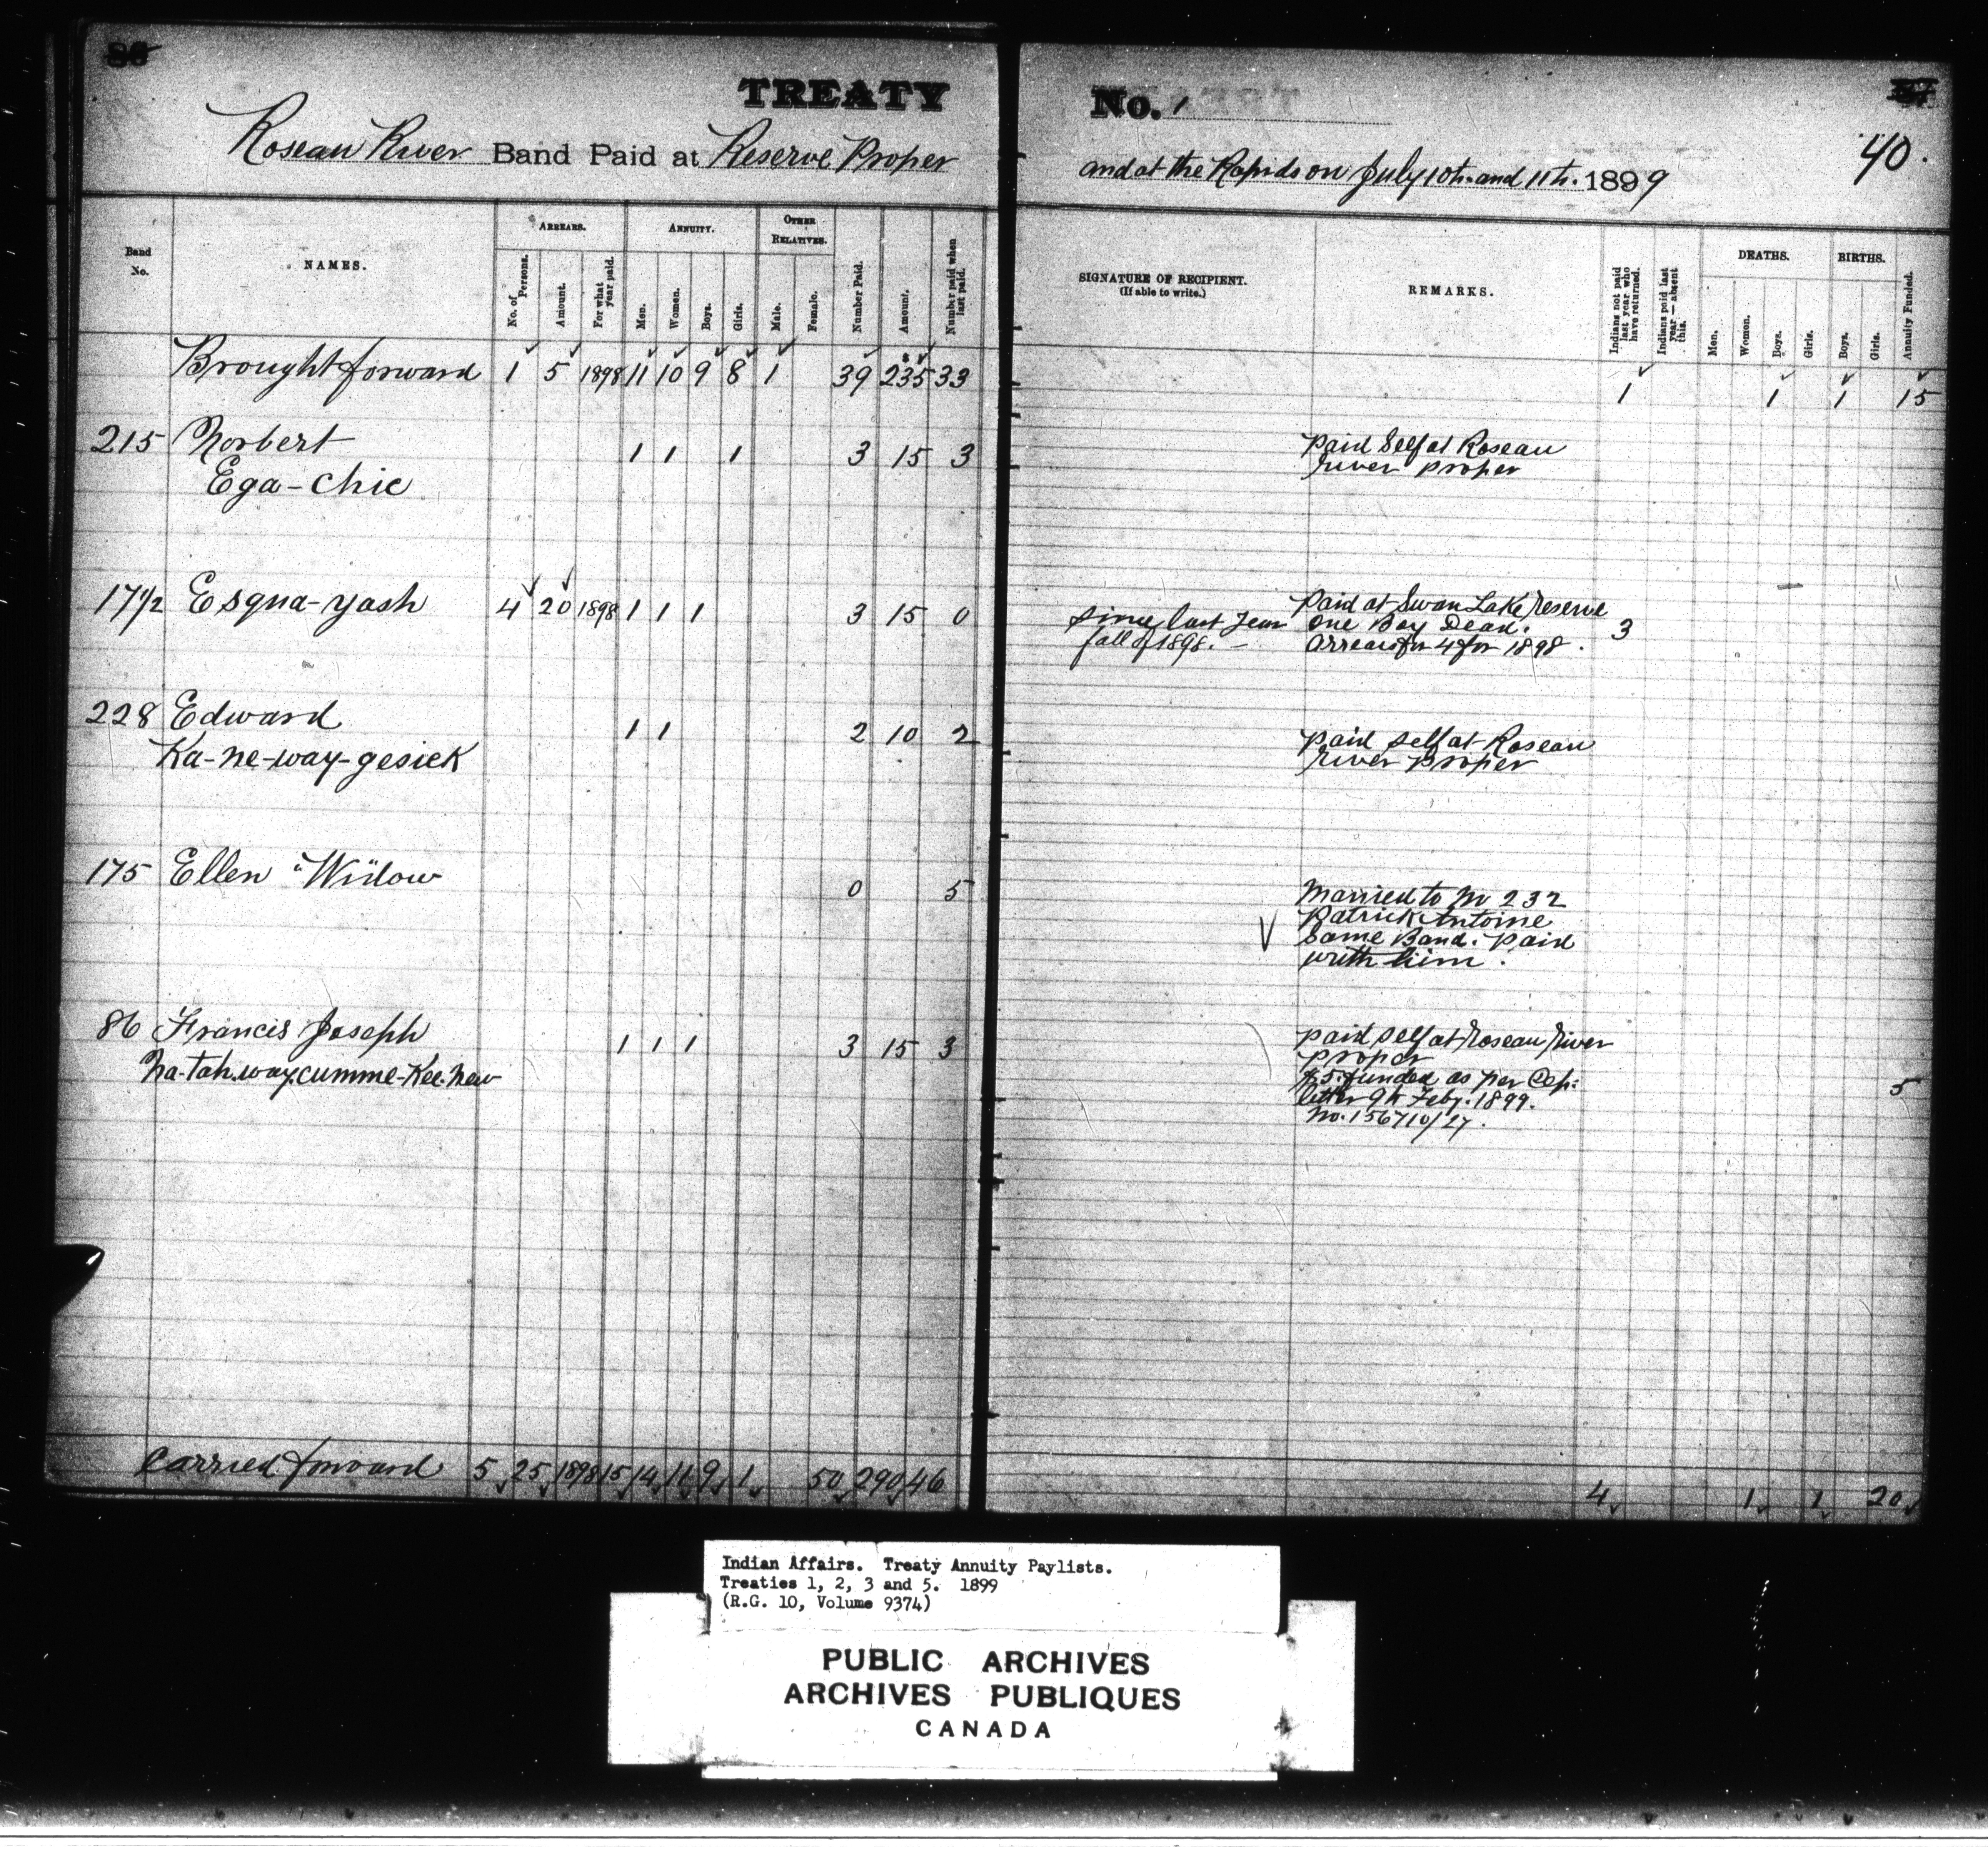 86
TREATY
No. 1
40.
Roseau River Band Paid at Reserve Proper
and at the Rapids on July 10th. and 11th. 1899
Band No.
NAMES.
ARREARS.
No. of Persons.
Amount.
For what year paid.
ANNUITY.
Men.
Women.
Boys.
Girls.
OTHER RELATIVES.
Male.
Female.
Number Paid.
Amount.
Number paid when last paid.
SIGNATURE OF RECIPIENT.
(If able to write.)
REMARKS.
Indians not paid last year who have returned.
Indians paid last year — absent this.
DEATHS.
Men.
Women.
Boys.
Girls.
BIRTHS.
Boys.
Girls.
Annuity Funded.
Brought forward 1 5 1898 11 10 9 8 1 39 235 33 1 1 1 15
215 Norbert 1 1 1 3 15 3 Paid Self at Roseau
Ega-chie River proper
17 1/2 Esqua-yash 4 20 1898 1 1 1 3 15 0 Paid at Swan Lake Reserve
since last year one Boy Dead. 3
fall of 1898. — Arrears for 4 for 1898.
228 Edward 1 1 2 10 2 paid self at Roseau
Ka-ne-way-gesick River proper
175 Ellen "Widow 0 5 Married to No 232
Patrick Antoine
Same Band. Paid
with him.
86 Francis Joseph 1 1 1 3 15 3 paid self at Roseau River
Na-tah.way.cumme-Kee.new proper
$5. funded as per Dep. 5
letter 9th Feby. 1899.
No. 156710/27.
Carried forward 5 25 1898 15 14 11 9 1 50 290 46 4 1 1 20
Indian Affairs. Treaty Annuity Paylists.
Treaties 1, 2, 3 and 5. 1899
(R.G. 10, Volume 9374)
PUBLIC ARCHIVES
ARCHIVES PUBLIQUES
CANADA